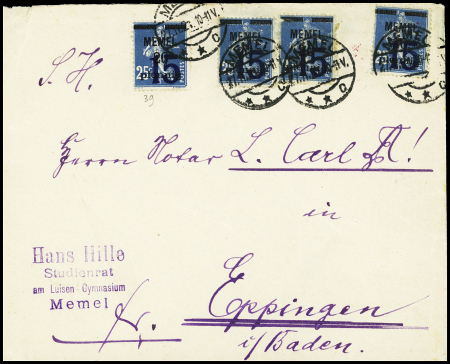 MEMEL
15
MEMEL
15
MEMEL
15
MEMEL
15
25c
39
S. H.
Herrn Notar L. Carl
in
Eppingen
i/Baden.
Hans Hille
Studienrat
am Luisen-Gymnasium
Memel